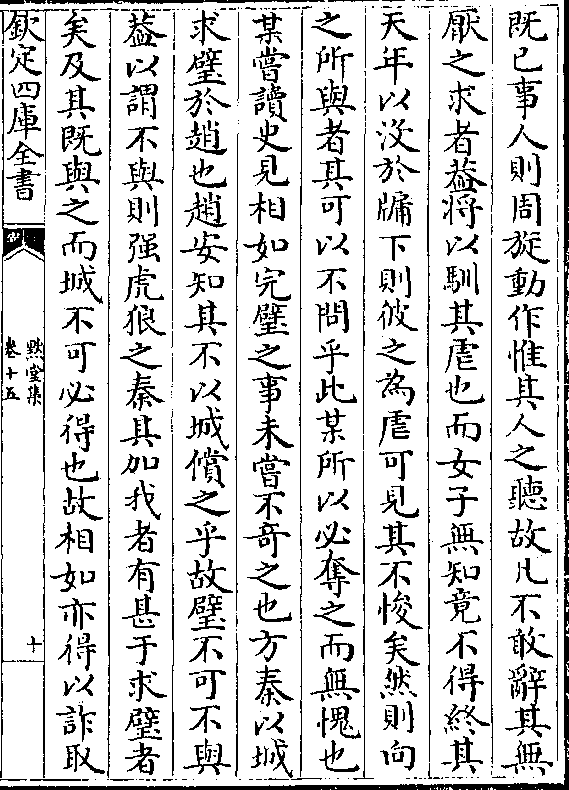 既已事人則周旋動作惟其人之聽故凡不敢辭其無
厭之求者葢将以馴其虐也而女子無知竟不得終其
天年以沒於牖下則彼之為虐可見其不悛矣然則向
之所與者其可以不問乎此某所以必奪之而無愧也
某嘗讀史見相如完璧之事未嘗不奇之也方秦以城
求璧於趙也趙安知其不以城償之乎故璧不可不與
葢以謂不與則强虎狼之秦其加我者有甚于求璧者
矣及其既與之而城不可必得也故相如亦得以詐取
欽定四庫全書
默堂集
卷十五
十